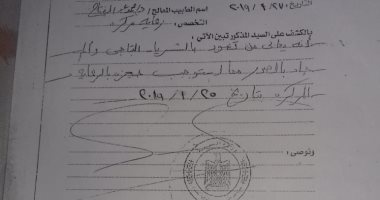 التاريخ: ٢٠١٩/١/٢٧ اسم الطبيب المعالج:
التخصص: رعاية مركزة
بالكشف على السيد المذكور تبين الآتي:
أنه يعانى من قصور بالشريان التاجى وألم
حاد بالصدر مما استوجب حجزه بالرعاية
المركزة بتاريخ ٢٠١٩/١/٢٥
ونوصى: